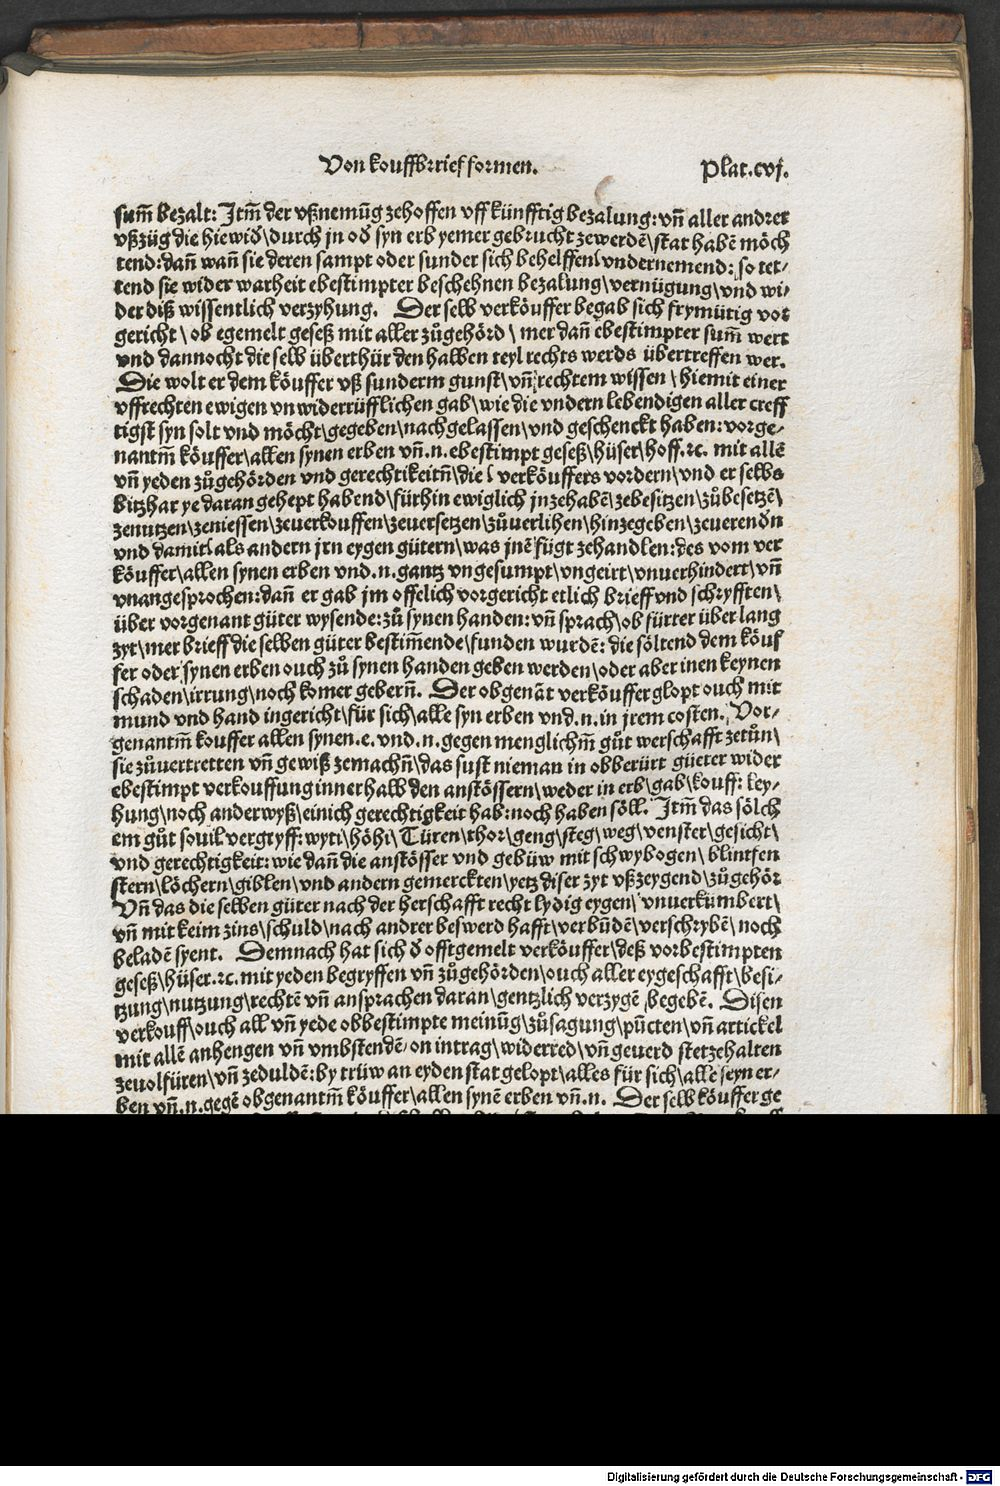 Von kouffbrrief formen.
Plat.cvj.
sum̄ bezalt: Jtm̄ der vßnemūg zehoffen vff künfftig bezalung: vn̄ aller andrer
vßzüg die hiewid\durch jn od syn erb yemer gebrucht zewerdē\stat habē möch
tend: dan̄ wan̄ sie deren sampt oder sunder sich behelffen\vndernemend: so tet⸗
tend sie wider warheit ebestimpter beschehnen bezalung\vernügung\vnd wi⸗
der diß wissentlich verzyhung. Der selb verköuffer begab sich frymütig vor
gericht\ob egemelt geseß mit aller zůgehörd\mer dan̄ ebestimpter sum̄ wert
vnd dannocht die selb überthür den halben teyl rechts werds übertreffen wer.
Die wolt er dem köuffer vß sunderm gunst\vn̄ rechtem wissen\hiemit einer
vffrechten ewigen vnwiderrüfflichen gab\wie die vndern lebendigen aller creff
tigst syn solt vnd möcht\gegeben\nachgelassen\vnd geschenckt haben: vorge⸗
nantm̄ köuffer\allen synen erben vn̄.n. ebestimpt geseß\hüser\hoff.ꝛc. mit allē
vn̄ yeden zůgehörden vnd gerechtikeitn̄\die\verköuffers vordern\vnd er selbs
bitzhar ye daran gehept habend\fürhin ewiglich jnzehabē\zebesitzen\zůbesetzē\
zenutzen\zeniessen\zeuerkouffen\zeuersetzen\zůuerlihen\hinzegeben\zeuerendn
vnd damit\als andern jrn eygen gütern\was jnē fügt zehandlen: des vom ver
köuffer\allen synen erben vnd.n. gantz vngesumpt\vngeirt\vnuerhindert\vn̄
vnangesprochen: dan̄ er gab jm offelich vorgericht etlich brieff vnd schryfften\
über vorgenant güter wysende: zů synen handen: vn̄ sprach\ob fürter über lang
zyt\mer brieff die selben güter bestim̄ende\funden wurdē: die söltend dem köuf
fer oder synen erben ouch zů synen handen geben werden\oder aber inen keynen
schaden\irrung\noch komer gebern̄. Der obgenāt verköuffer glopt ouch mit
mund vnd hand ingericht\für sich\alle syn erben vnd.n. in jrem costen. Vor⸗
genantm̄ kouffer allen synen.e. vnd.n. gegen menglichm̄ gůt werschafft zetůn\
sie zůuertretten vn̄ gewiß zemachn̄\das sust nieman in obberürt güeter wider
ebestimpt verkouffung innerhalb den anstössern\weder in erb\gab\kouff: ley⸗
hung\noch anderwyß\einich gerechtigkeit hab: noch haben söll. Jtm̄ das sölch
em gůt souil vergryff: wyti\höhi\Türen\thor\geng\steg\weg\venster\gesicht\
vnd gerechtigkeit: wie dan̄ die anstösser vnd gebüw mit schwybogen\blintfen
stern\löchern\giblen\vnd andern gemerckten\yetz diser zyt vßzeygend\zůgehör
Vn̄ das die selben güter nach der herschafft recht lydig eygen\vnuerkümbert\
vn̄ mit keim zins\schuld\nach andrer beswerd hafft\verbūdē\verschrybē\noch
beladē syent. Demnach hat sich d offtgemelt verköuffer\deß vorbestimpten
geseß\hüser.ꝛc. mit yeden begryffen vn̄ zůgehörden\ouch aller eygeschafft\besi⸗
tzung\nutzung\rechtē vn̄ ansprachen daran\gentzlich verzygē\begebē. Disen
verkouff\ouch all vn̄ yede obbestimpte meinūg\zůsagung\pūcten\vn̄ artickel
mit allē anhengen vn̄ vmbstendē\on intrag\widerred\vn̄ geuerd stetzehalten
zeuolfüren\vn̄ zeduldē: by trüw an eyden stat gelopt\alles für sich\alle seyn er⸗
ben vn̄.n. gegē obgenantm̄ köuffer\allen synē erben vn̄.n. Der selb köuffer ge
Digitalisierung gefördert durch die Deutsche Forschungsgemeinschaft - DFG